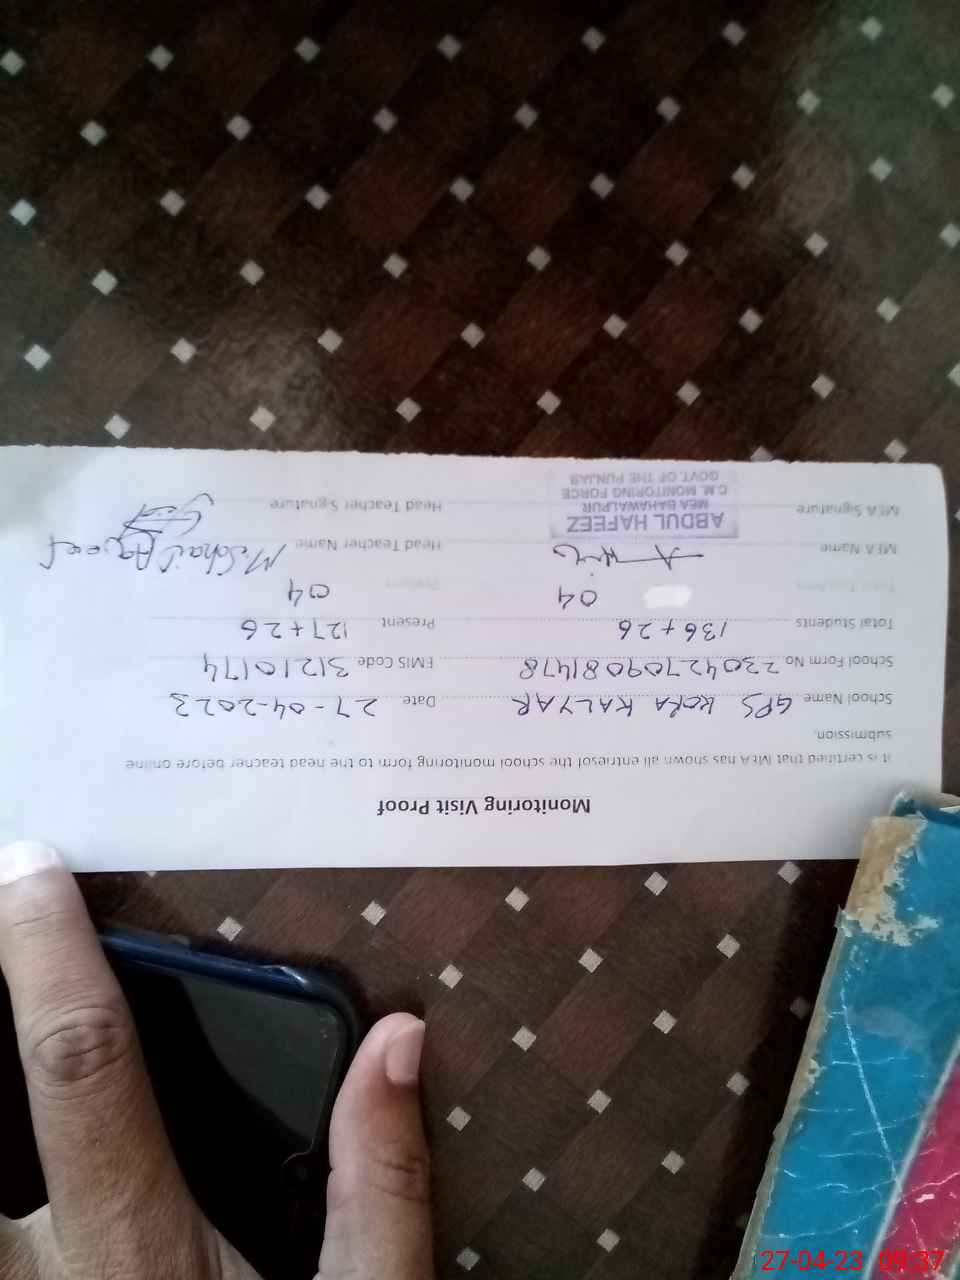 Monitoring Visit Proof
it is certified that MEA has shown all entriesof the school monitoring form to the head teacher before online
submission.
School Name GPS KORA KALYAR Date 27-04-2023
School Form No 23042709081478 EMIS Code 31210174
Total Students 136+26 Present 127+26
Total Teachers 04 Present 04
MEA Name Head Teacher Name M. Sohail
ABDUL HAFEEZ
MEA BAHAWALPUR
C.M. MONITORING FORCE
GOVT. OF THE PUNJAB
MEA Signature Head Teacher Signature
27-04-23 09:37